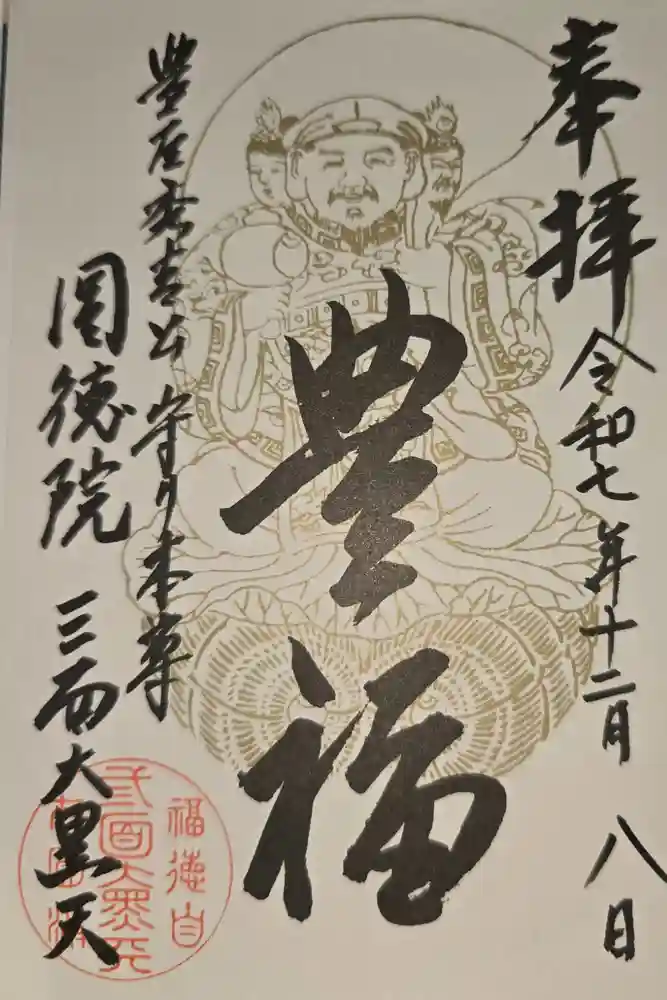 奉拝
令和七年十二月八日
豊福
豊臣秀吉公 守り本尊
圓徳院 三面大黒天
福徳自
三面大黒天